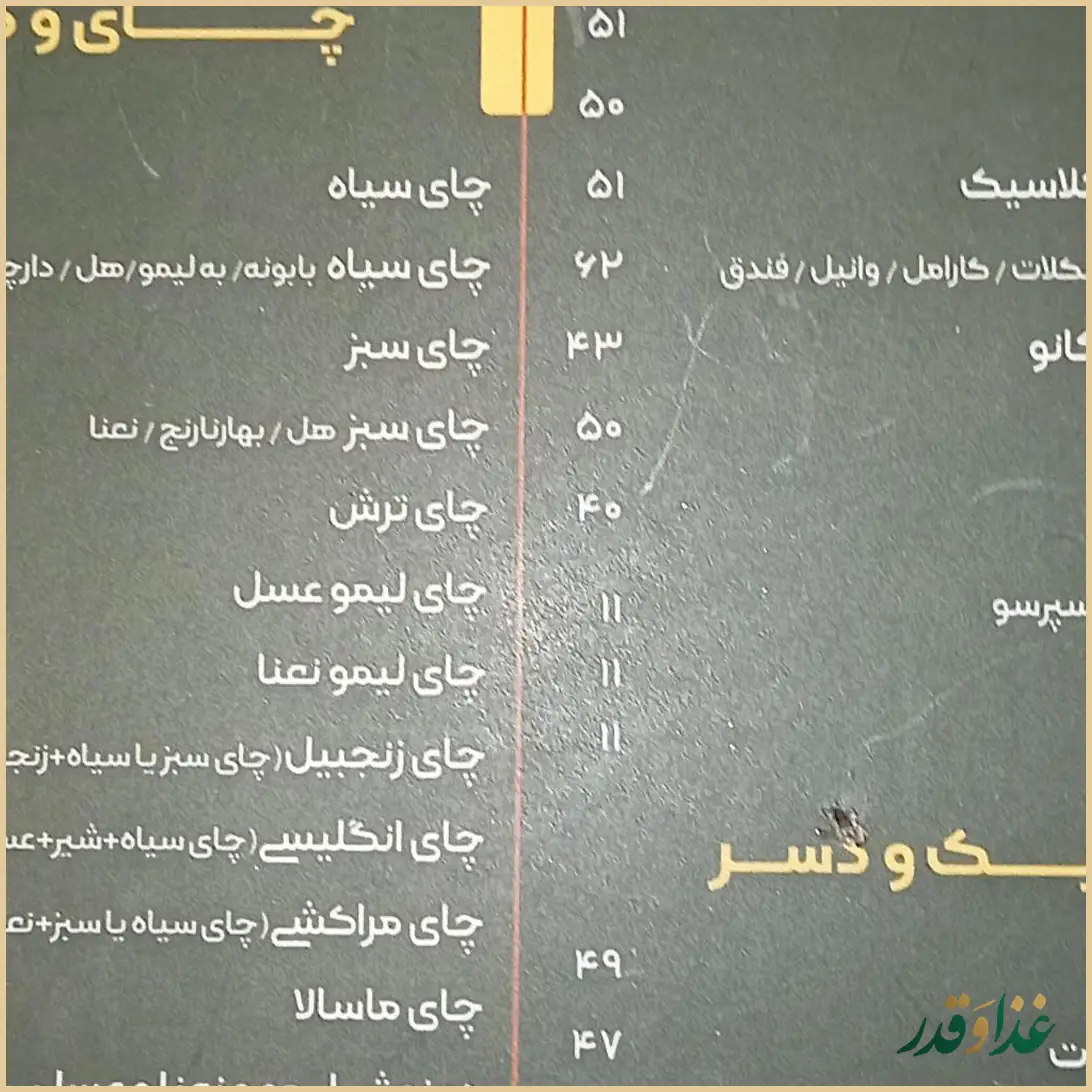 ۵۱
۵۰
لاسیک ۵۱
کلات / کارامل / وانیل / فندق ۶۲
کانو ۴۳
۵۰
۴۰
سپرسو ۱۱
۱۱
۱۱
ک و دسر
۴۹
ت ۴۷
چای و
چای سیاه
چای سیاه بابونه/ به لیمو/هل/ دارچ
چای سبز
چای سبز هل/ بهارنارنج/ نعنا
چای ترش
چای لیمو عسل
چای لیمو نعنا
چای زنجبیل(چای سبز یا سیاه+زنج
چای انگلیسی(چای سیاه+شیر+عس
چای مراکشی(چای سیاه یا سبز+نع
چای ماسالا
غذا و قدر